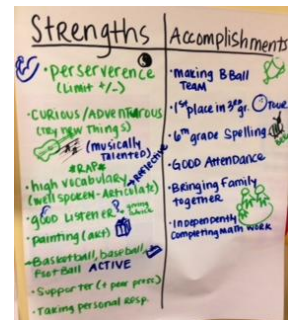 Strengths
• perserverence
(Limit +/-)
• CURIOUS/ADVENTUROUS
(try new Things)
(musically
talented)
*RAP*
Reflective
• high vocabulary
(well spoken - Articulate)
• good Listener
• painting (art)
• Basketball, baseball,
Football ACTIVE
• Supporter (+ peer press)
• Taking personal resp.
Accomplishments
• making BBall
TEAM
• 1st place in 3rd gr.
• 6th grade Spelling
• GOOD Attendance
• Bringing Family
together
• Independently
completing math work